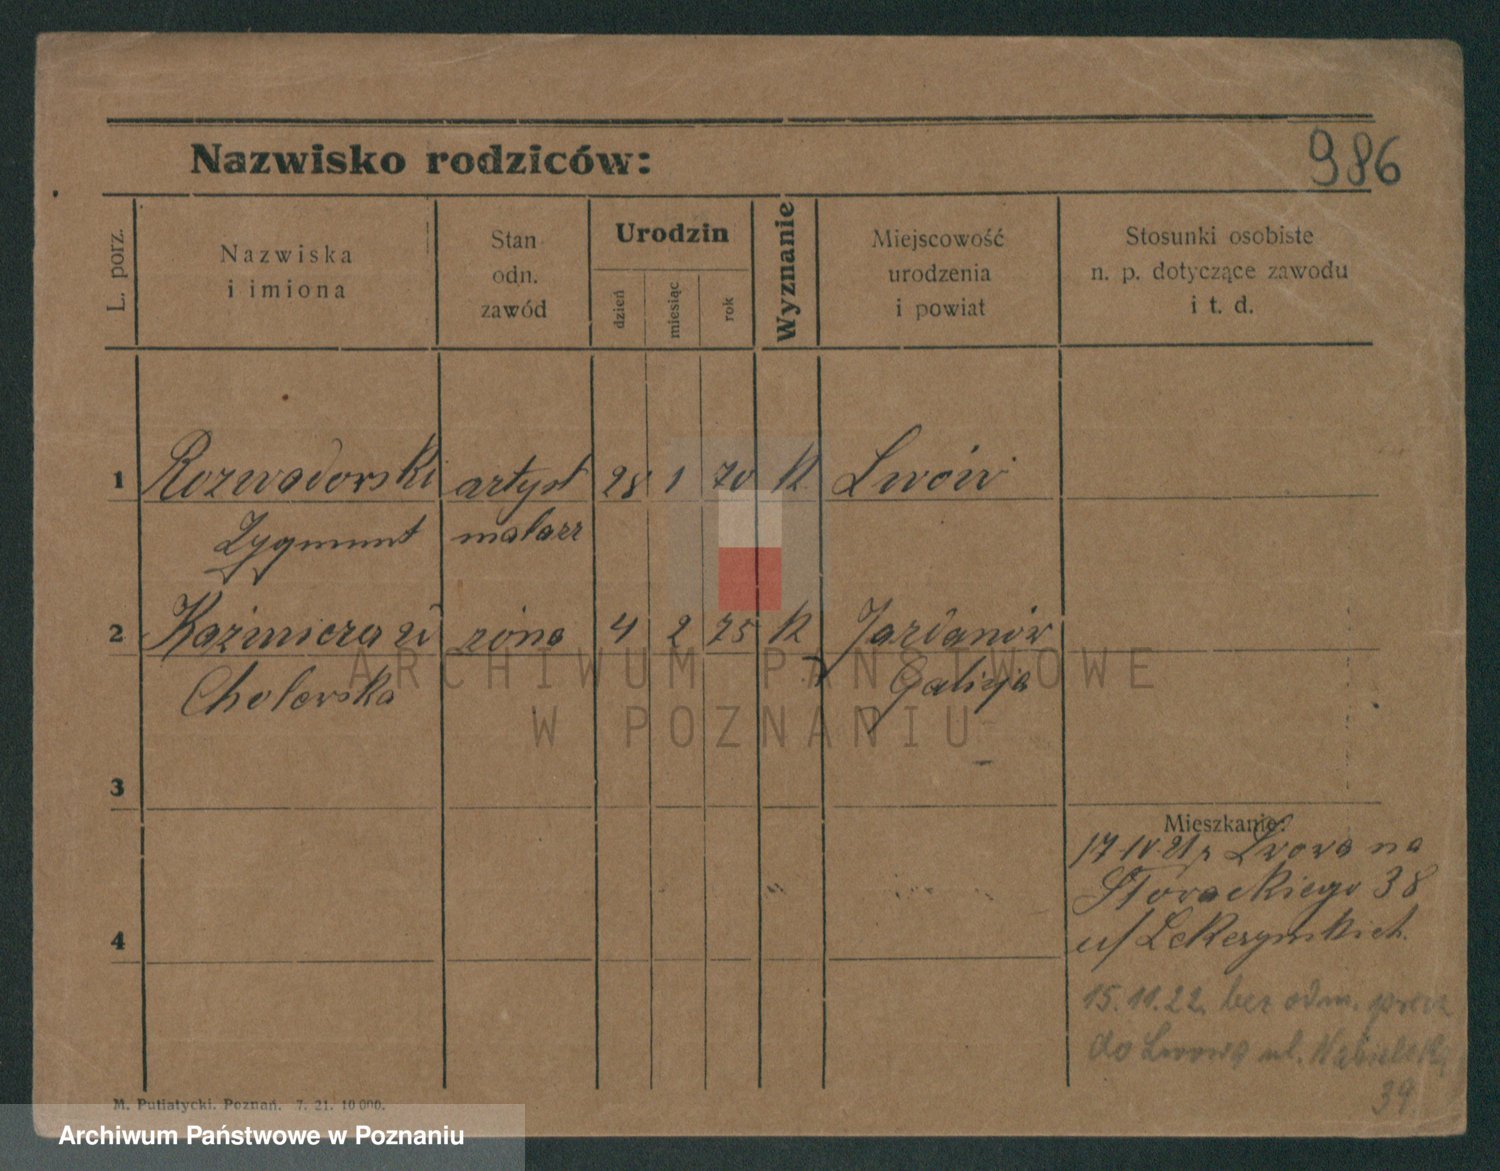 986
Nazwisko rodziców:
L. porz.
Nazwiska
i imiona
Stan
odn.
zawód
Urodzin
dzień
miesiąc
rok
Wyznanie
Miejscowość
urodzenia
i powiat
Stosunki osobiste
n. p. dotyczące zawodu
i t. d.
1 Rozwadowski artyst 28 1 70 k Lwów
Zygmunt malarz
2 Kaźmiera zd żona 4 2 75 k Jordanów
Cholewska Galicja
3
4
Mieszkanie:
17 IV. 21 z Lwowa na
Słowackiego 38
u/
15.11.22. bez odm. precz
do Lwowa ul. Nabielaka
39
M. Putiatycki. Poznań. 7. 21. 10 000.
ARCHIWUM PAŃSTWOWE
W POZNANIU
Archiwum Państwowe w Poznaniu